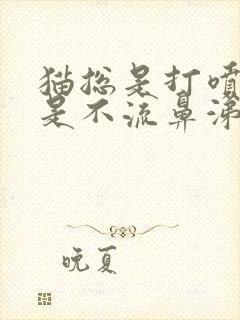 猫总是打喷
是不流鼻涕
晚夏